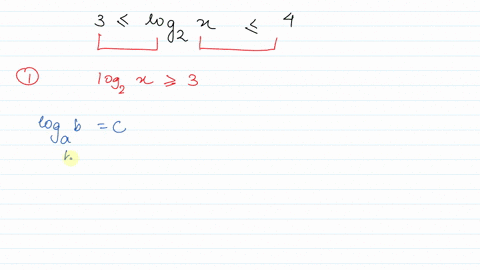 3 ≤ log₂ x ≤ 4
① log₂ x ≥ 3
logₐ b = C